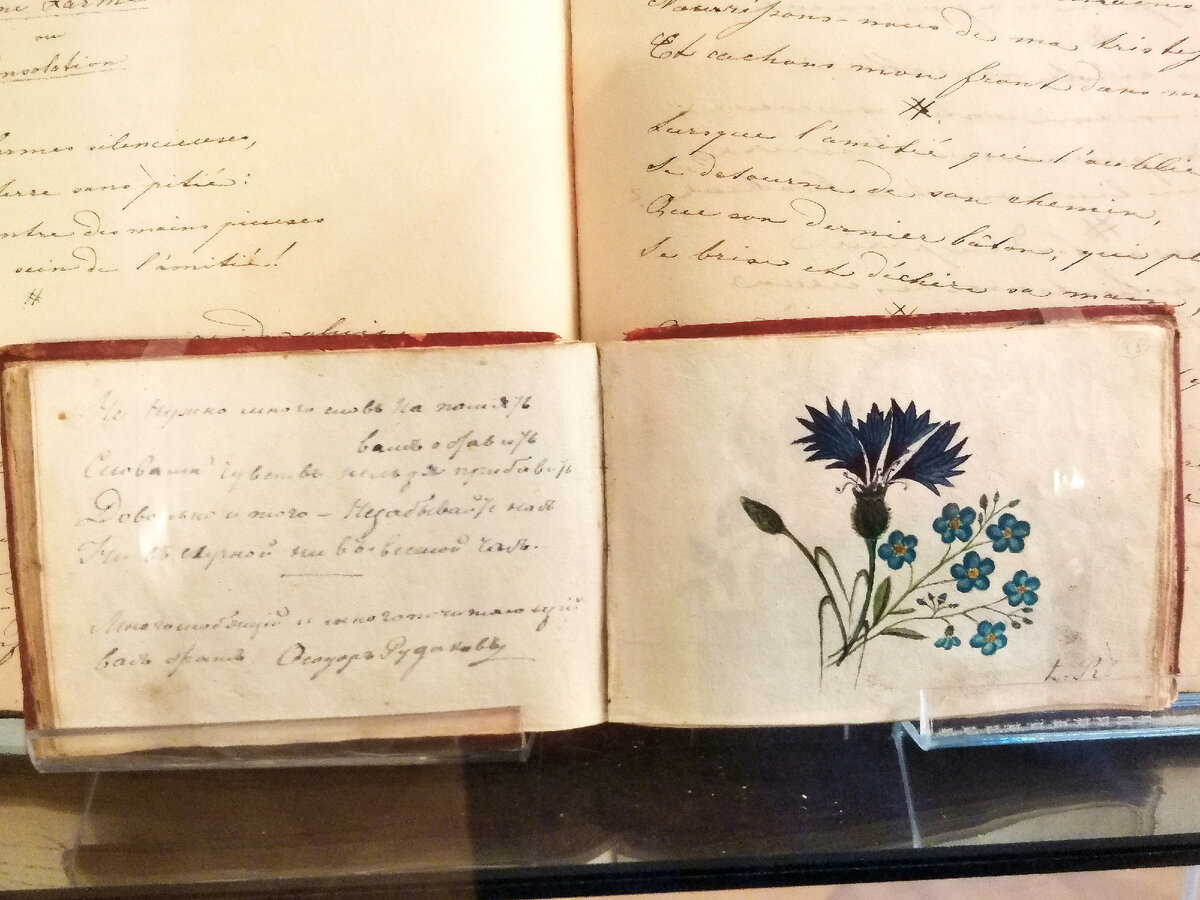 Larme
ou
nsolation
armes silencieuses,
terre sans pitié:
ntre des mains pieuses
sein de l'amitié!
Nourrissons-nous de ma
Et cachons mon front dans
Lorsque l'amitié qui l'oublie
Se détourne de son chemin,
Que son dernier bâton, qui pl
Se brise et déchire sa main
Не нужно много словъ на память
вамъ оставить
чувствъ нельзя прибавить
Довольно и того – Незабывайте насъ
Ни въ скучной ни въ веселой часъ.
Многолюбящій и многопочитающій
васъ братъ Ѳеодоръ Рудаковъ